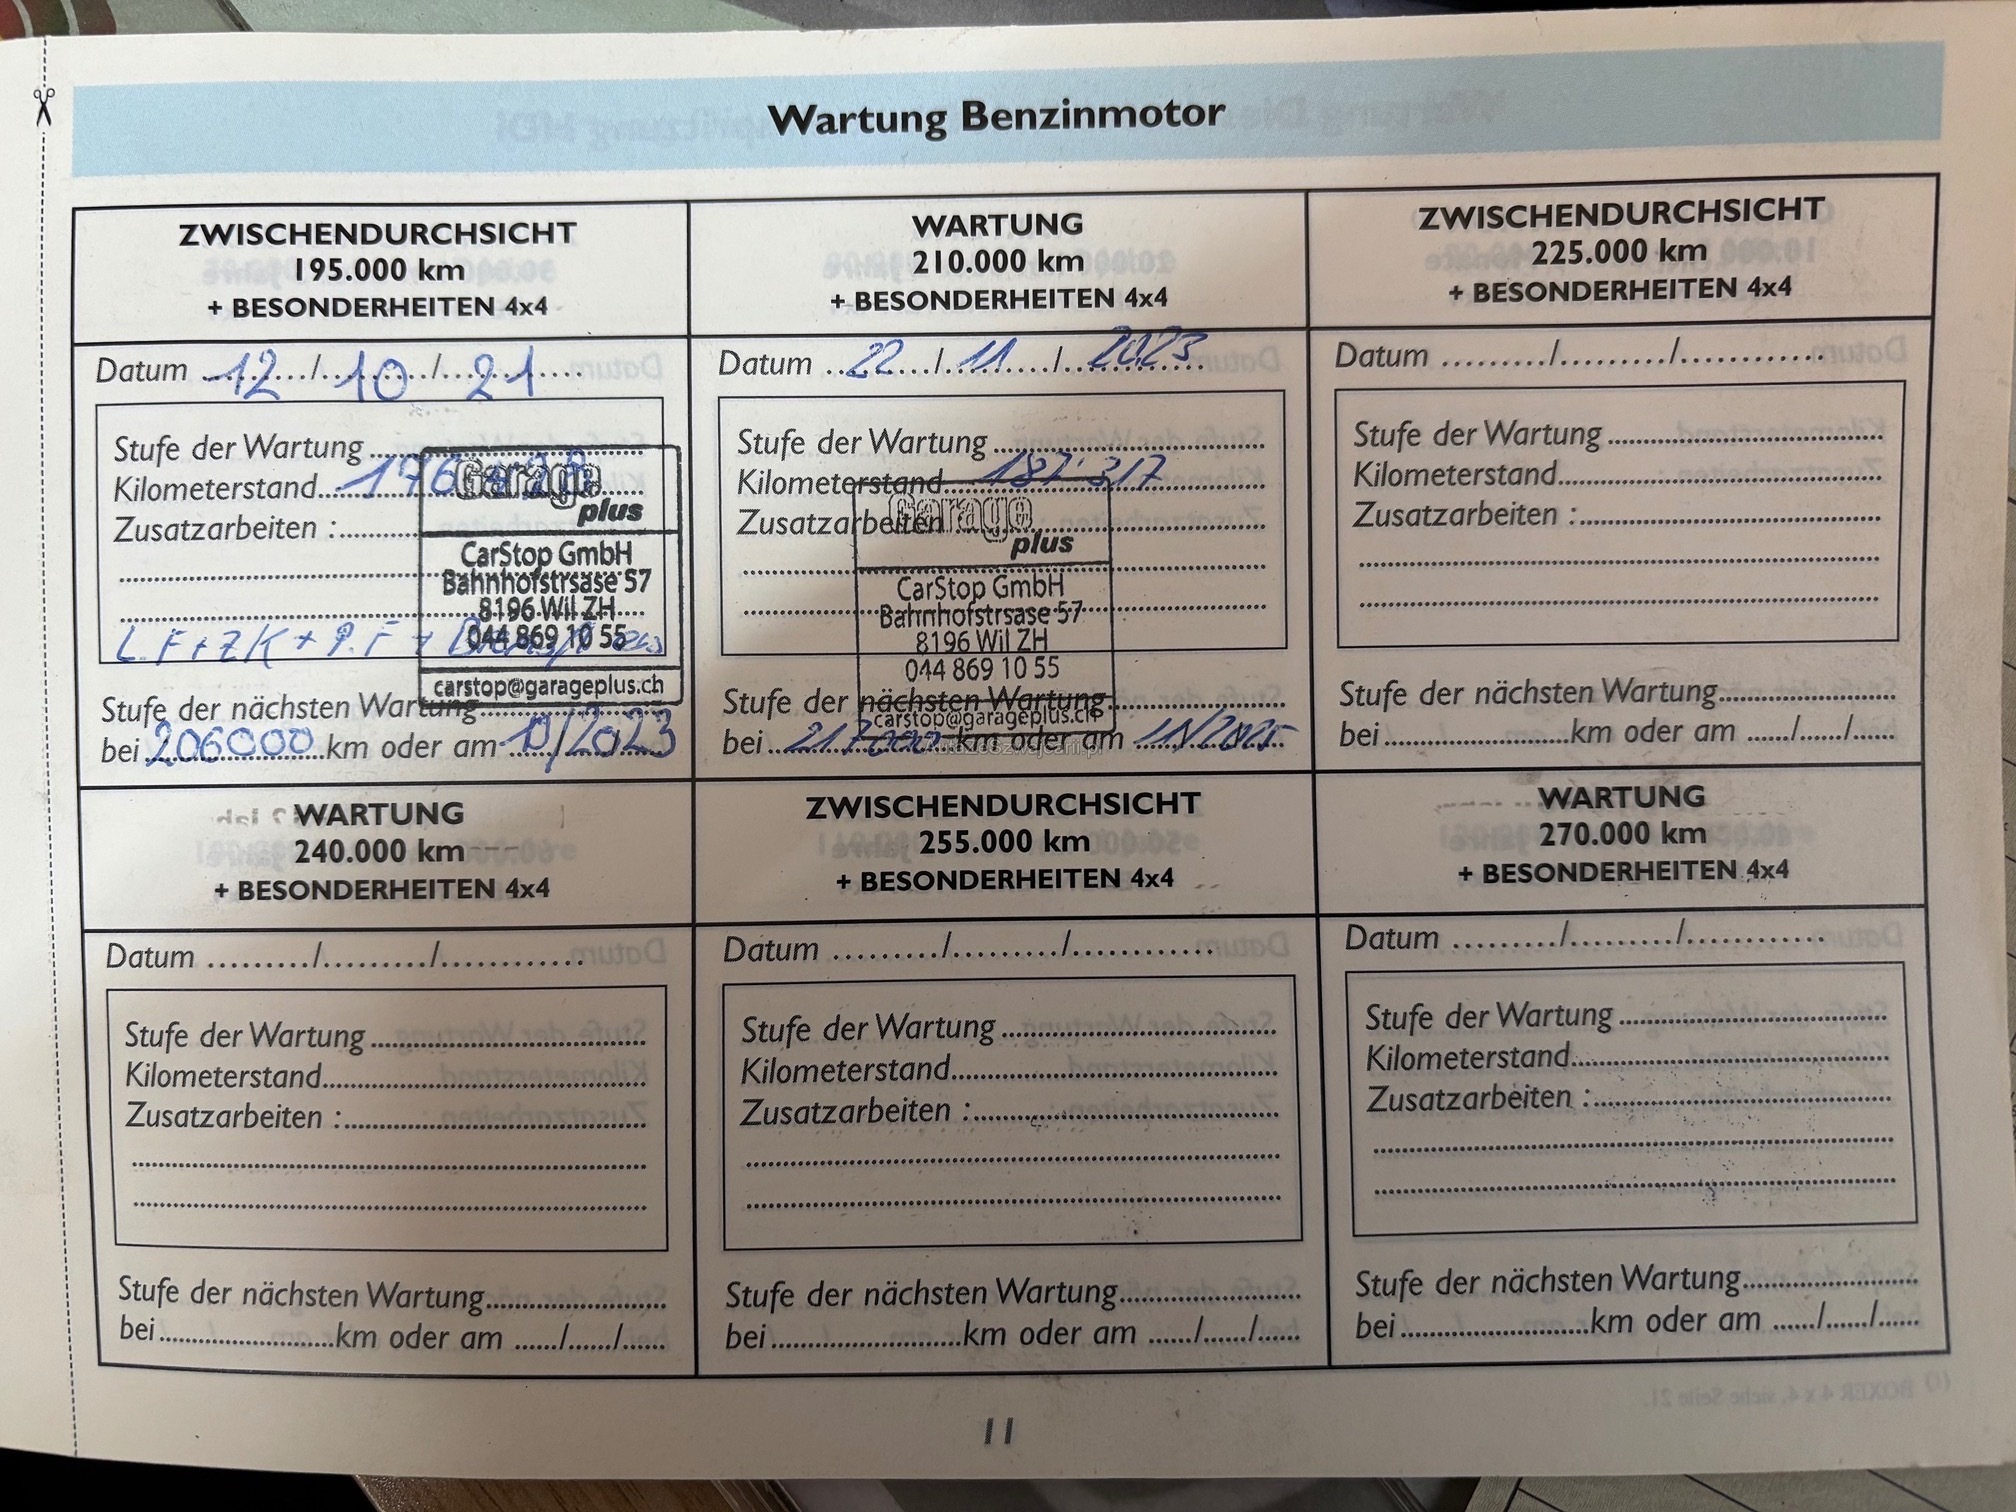 Wartung Benzinmotor
ZWISCHENDURCHSICHT
195.000 km
+ BESONDERHEITEN 4x4
Datum 12 / 10 / 21
Stufe der Wartung
Kilometerstand 176
Zusatzarbeiten :
Garage
plus
CarStop GmbH
Bahnhofstrsase 57
8196 Wil ZH
044 869 10 55
L.F + ZK + P.F +
carstop@garageplus.ch
Stufe der nächsten Wartung
bei 206000 km oder am 10/2023
WARTUNG
210.000 km
+ BESONDERHEITEN 4x4
Datum 22 / 11 / 2023
Stufe der Wartung
Kilometerstand 187'317
Zusatzarbeiten
Garage
plus
CarStop GmbH
Bahnhofstrsase 57
8196 Wil ZH
044 869 10 55
Stufe der nächsten Wartung
carstop@garageplus.ch
bei 217000 km oder am 11/2025
ZWISCHENDURCHSICHT
225.000 km
+ BESONDERHEITEN 4x4
Datum ........./........./............
Stufe der Wartung
Kilometerstand
Zusatzarbeiten :
Stufe der nächsten Wartung
bei ........ km oder am ....../....../......
WARTUNG
240.000 km
+ BESONDERHEITEN 4x4
Datum ........./........./............
Stufe der Wartung
Kilometerstand
Zusatzarbeiten :
Stufe der nächsten Wartung
bei ........ km oder am ....../....../......
ZWISCHENDURCHSICHT
255.000 km
+ BESONDERHEITEN 4x4
Datum ........./........./............
Stufe der Wartung
Kilometerstand
Zusatzarbeiten :
Stufe der nächsten Wartung
bei ........ km oder am ....../....../......
WARTUNG
270.000 km
+ BESONDERHEITEN 4x4
Datum ........./........./............
Stufe der Wartung
Kilometerstand
Zusatzarbeiten :
Stufe der nächsten Wartung
bei ........ km oder am ....../....../......
11